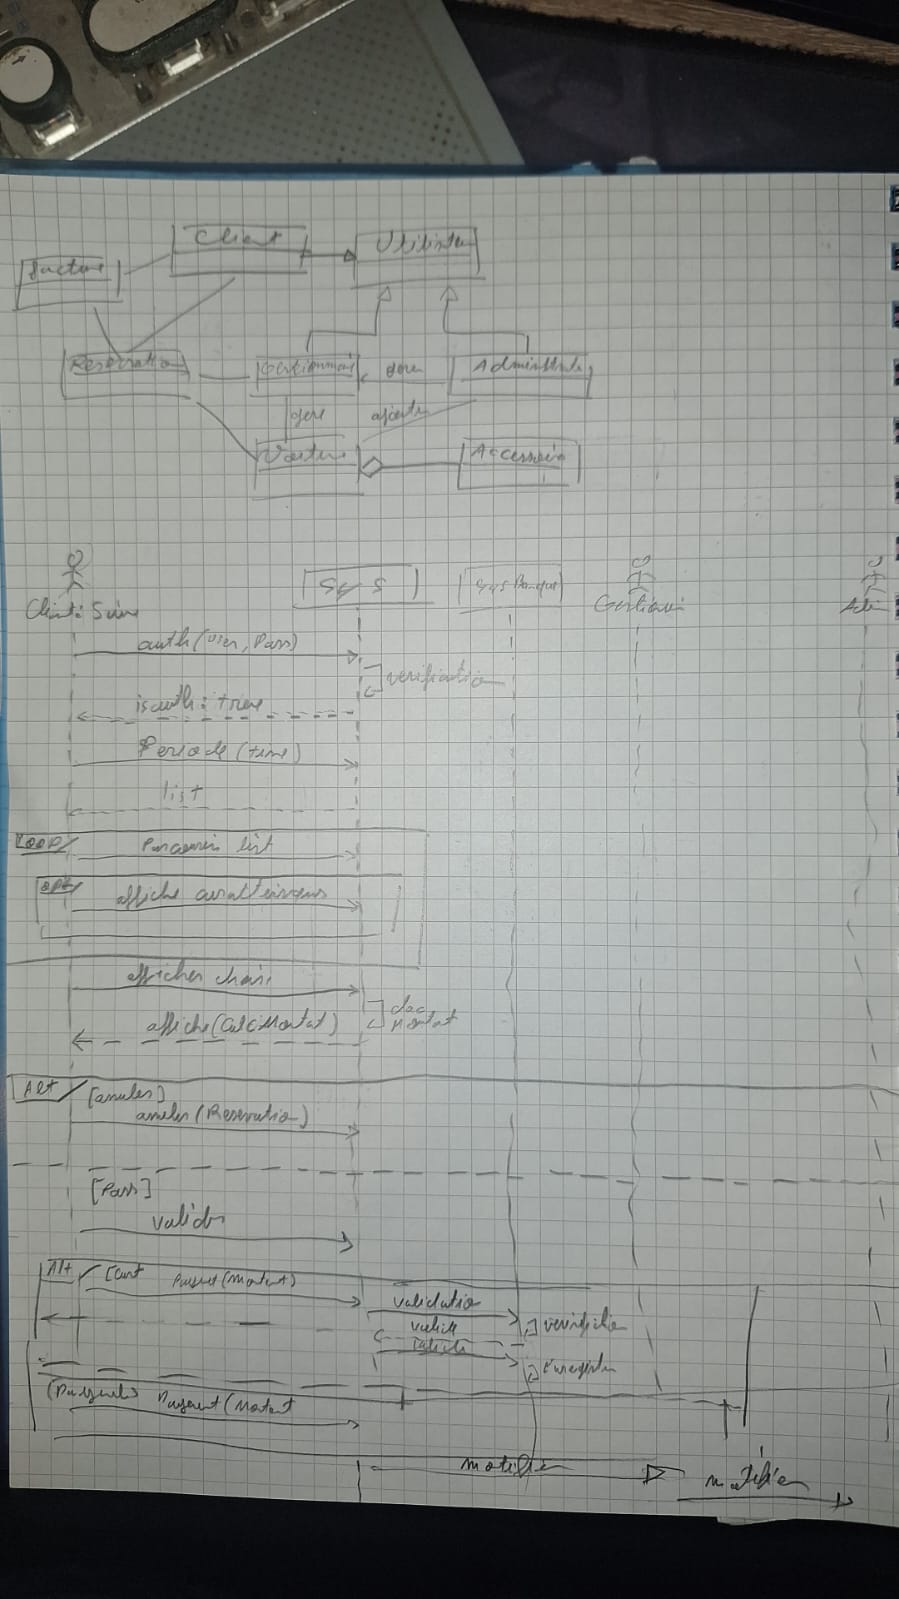 Client
Utilisateu
Facture
Reservation
Gestionnai
gere
Administrate
gere
ajoute
Voiture
Accessoire
SYS
SysBanque
Client: Suiv
Gestionnai
auth(User, Pass)
verification
isauth: true
Periode (time)
list
LOOP
Parcourir list
OPt
affiche caratteristiques
afficher choix
Montat
affiche(CalcMontat)
Alt
[annuler]
annuler (Reservatio)
[Pass]
valider
Alt
[Cart
Payment(Montant)
validatio
verificatio
valide
Enregistre
Payment(Montant
notifier
notifier